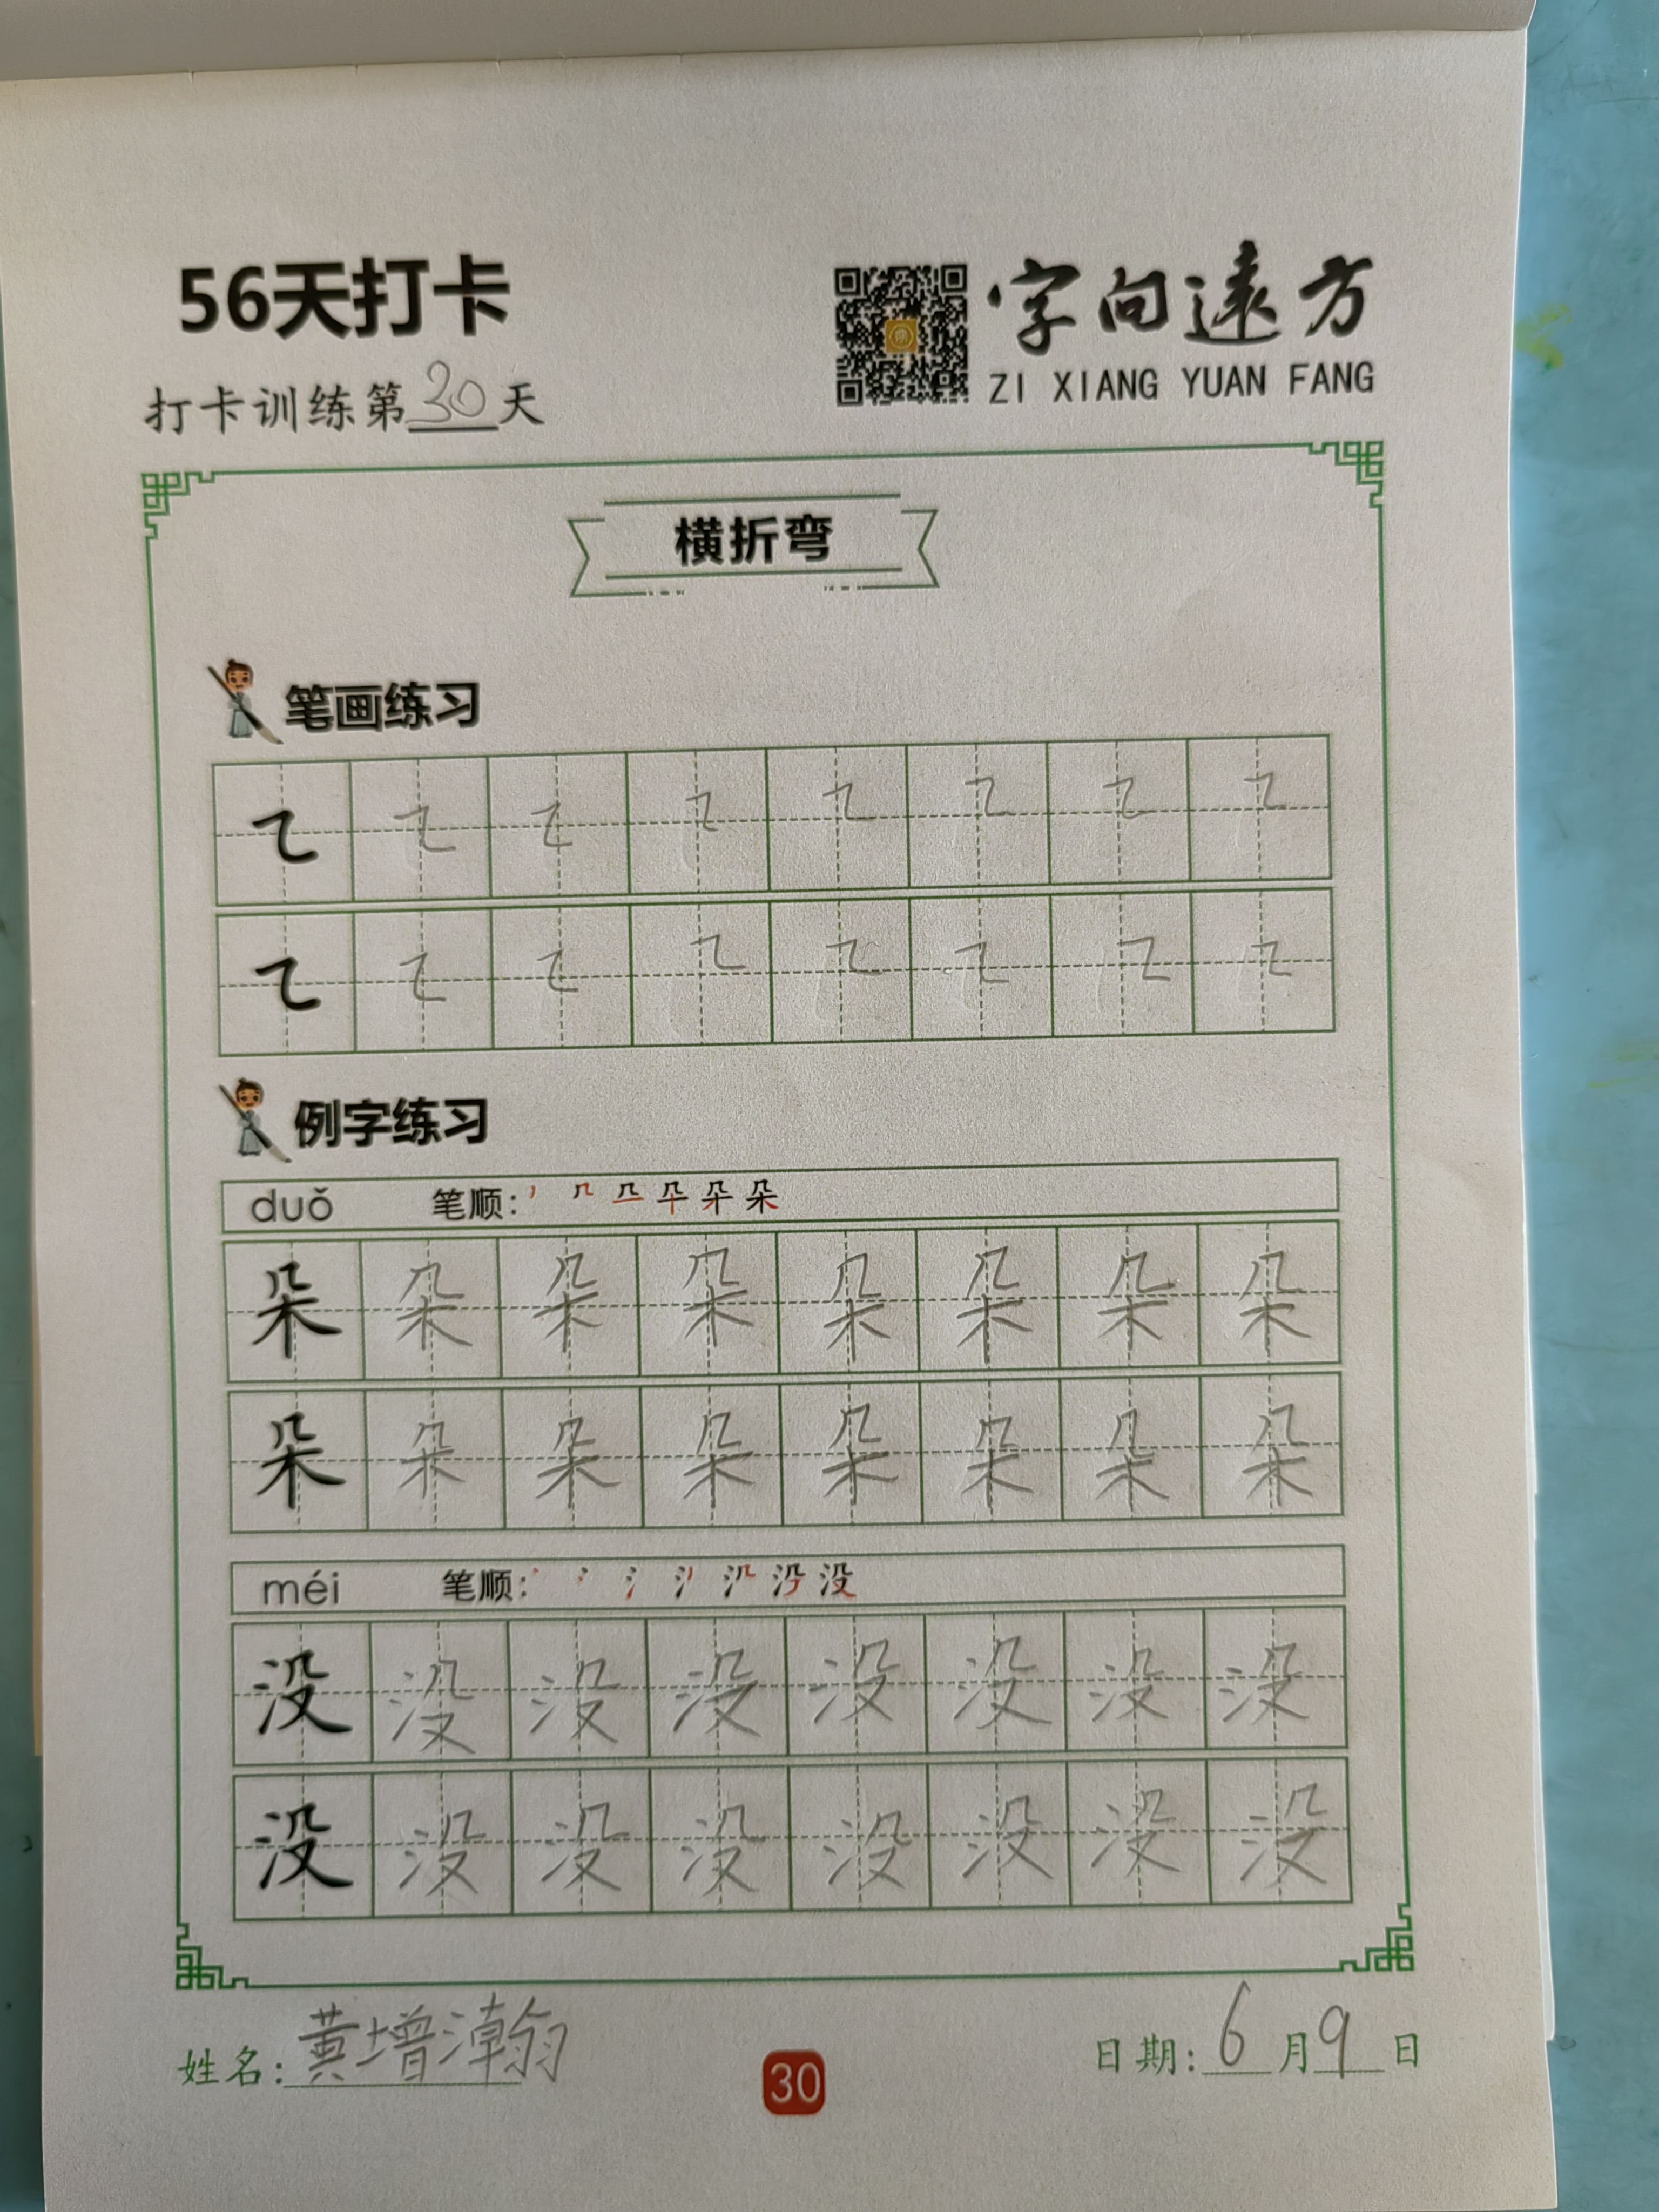 56天打卡
字向遠方
ZI XIANG YUAN FANG
打卡训练第30天
横折弯
笔画练习
㇍ ㇍ ㇍ ㇍ ㇍ ㇍ ㇍ ㇍
㇍ ㇍ ㇍ ㇍ ㇍ ㇍ ㇍ ㇍
例字练习
duǒ 笔顺: 朵
朵 朵 朵 朵 朵 朵 朵 朵
朵 朵 朵 朵 朵 朵 朵 朵
méi 笔顺: 没
没 没 没 没 没 没 没 没
没 没 没 没 没 没 没 没
姓名: 黄增瀚
30
日期: 6月9日